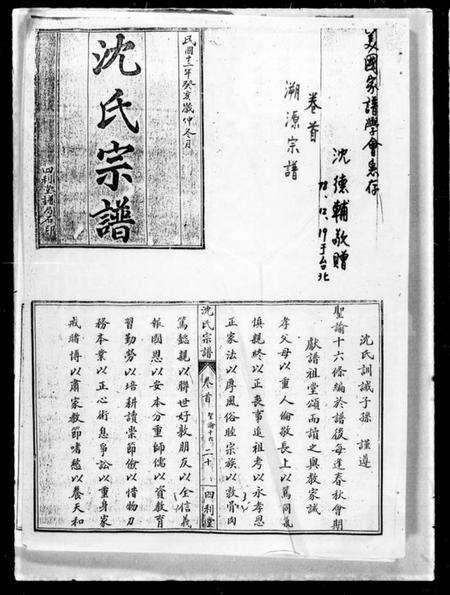 美國家譜學會惠存
沈德輔敬贈
78.12.19于台北
卷首
溯源宗譜
民國十二年癸亥歲仲冬月
沈氏宗譜
四利堂譜局石印
沈氏訓誡子孫 謹遵
聖諭十六條編於譜後每逢春秋會期
獻譜祖堂頌而讀之與教家誡
孝父母以重人倫敬長上以篤同氣
慎親終以正喪事追祖考以永孝思
正家法以厚風俗睦宗族以敦骨肉
沈氏宗譜 卷首 聖諭十六 二十 四利堂
篤懿親以聯世好敦朋友以全信義
報國恩以安本分重師儒以資教育
習勤勞以培耕讀崇節儉以惜物力
務本業以正心術息爭訟以重身家
戒賭博以肅家教節嗜慾以養天和